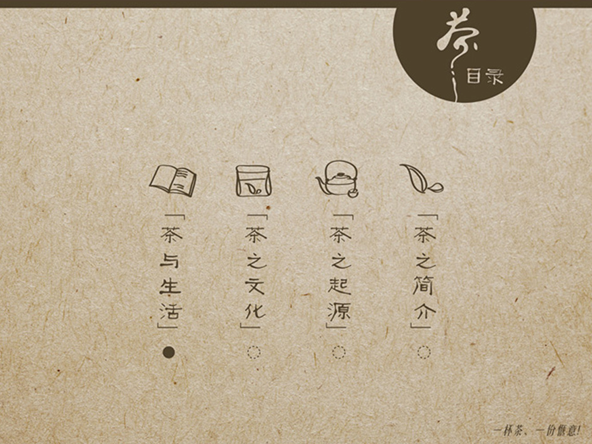 茶
目录
「茶之简介」
「茶之起源」
「茶之文化」
「茶与生活」
一杯茶、一份惬意!